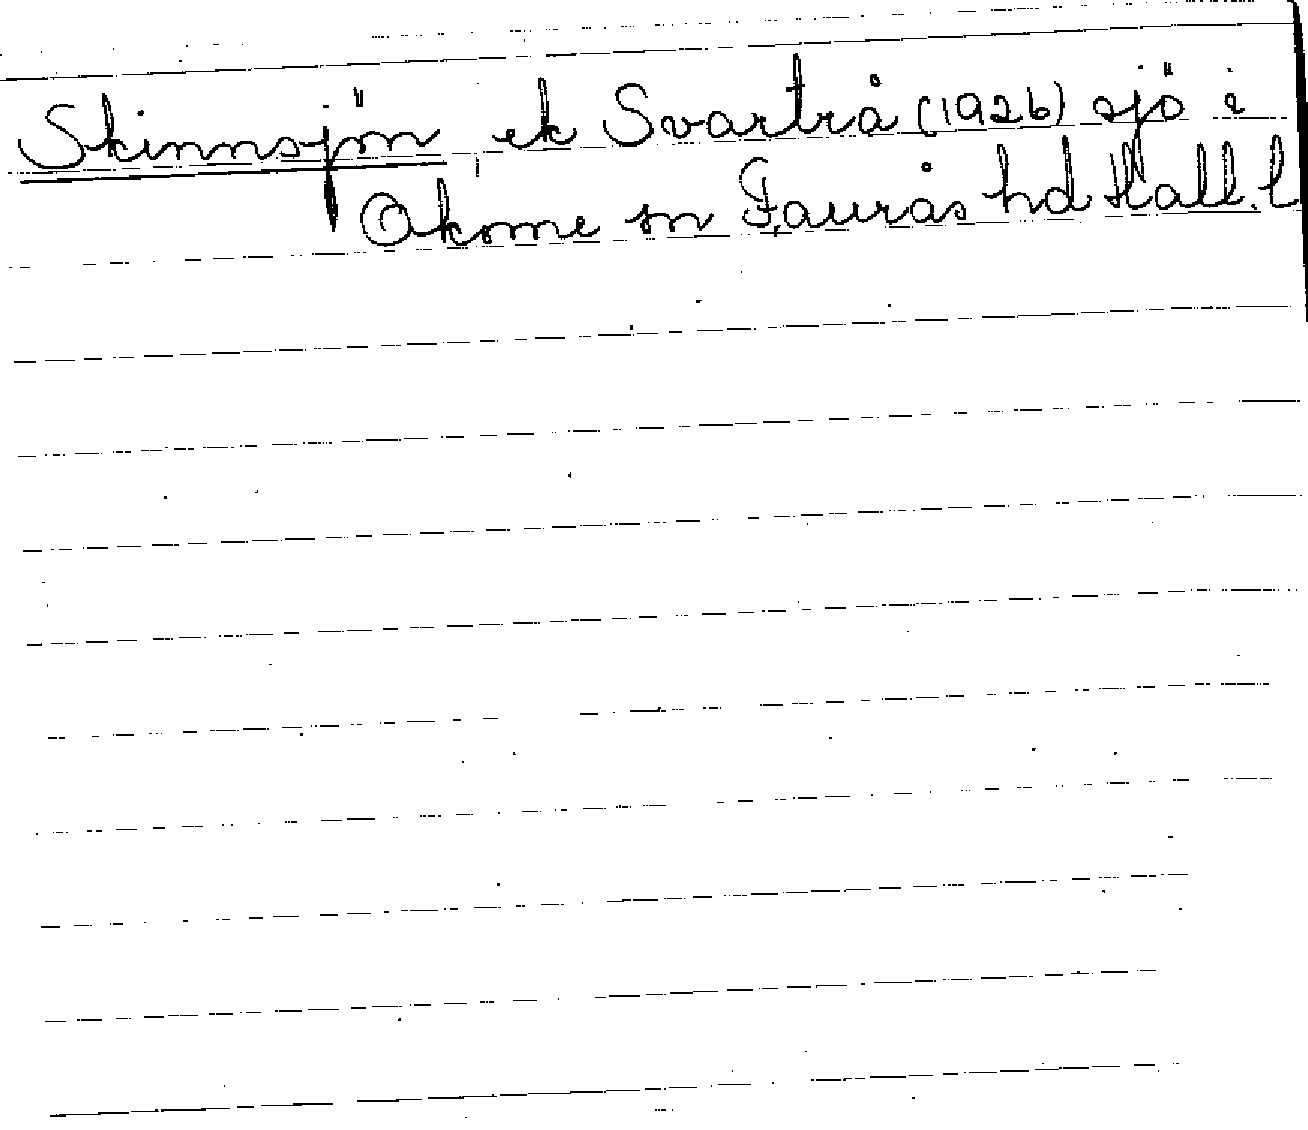 Skinnsjön, ek Svartrå (1926) sjö i
Okome sn Faurås hd Hall. l